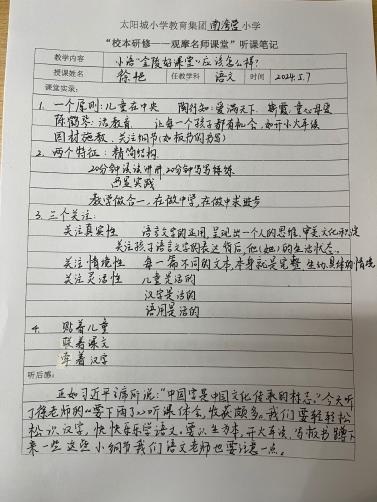 太阳城小学教育集团 南湾营 小学
“校本研修——观摩名师课堂”听课笔记
教学内容 小语“金陵好课堂”应该怎么样?
授课姓名 徐艳 任教学科 语文 时间 2024.5.7
课堂实录:
1. 一个原则:儿童在中央 陶行知:爱满天下. 斯霞:童心母爱
陈鹤琴:活教育 让每一个孩子都有机会,如开小火车读
因材施教、关注细节(如板书的书写)
2. 两个特征:精简结构
20分钟读读讲讲 20分钟写写练练
凸显实践
教学做合一,在做中学,在做中求进步
3. 三个关注:
关注真实性 语言文字的运用,呈现出一个人的思维、审美文化积淀
关注孩子语言文字的表达背后,他(她)的生活状态。
关注情境性 每一篇不同的文本,本身就是完整、生动、具体的情境
关注灵活性 儿童是活的
汉字是活的
语用是活的
4. 贴着儿童
联着课文
牵着汉字
听后感:
正如习近平主席所说:“中国字是中国文化传承的标志。”今天听
了徐老师的 听课体会,收获颇多。我们要轻轻松
松识汉字,快快乐乐学语文。要以生为本,开火车读,写板书蹲下
来一些这些小细节我们语文老师也要注意一点。